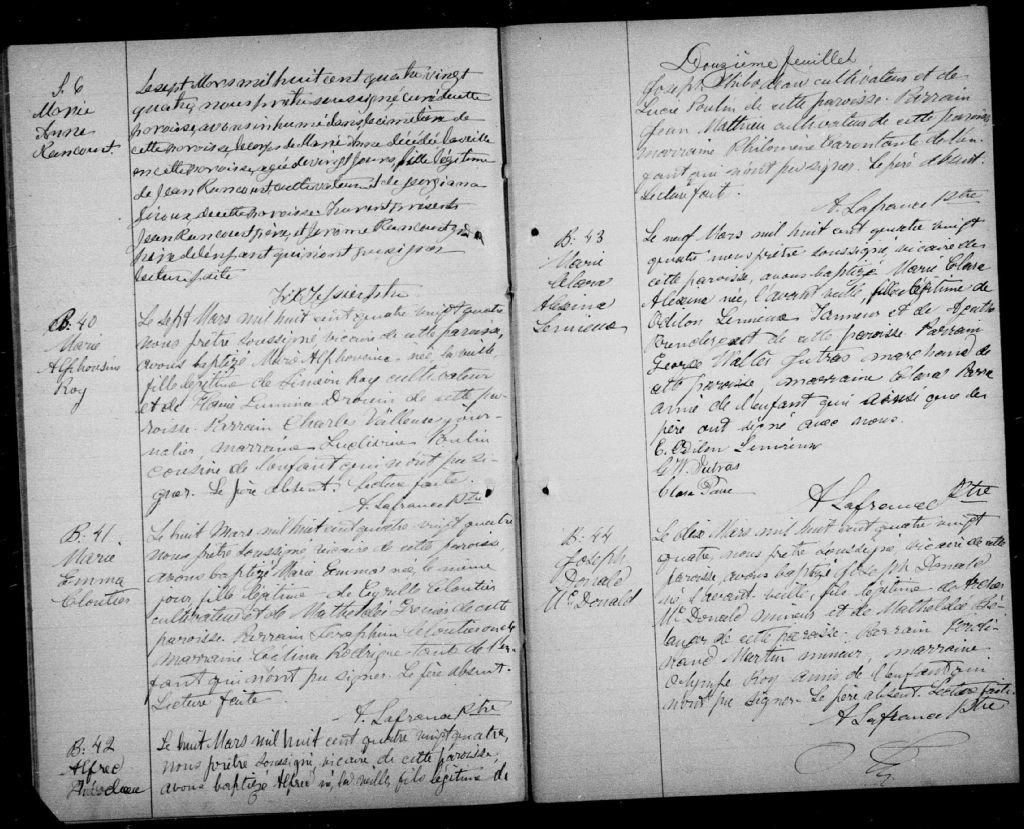 S. 6
Marie
Anne
Rancourt.
Le sept Mars mil huit cent quatre vingt
quatre, nous prêtre soussigné curé de cette
paroisse, avons inhumé dans le cimetière de
cette paroisse le corps de Marie Anne décédée la veille
en cette paroisse, agée de vingt jours, fille légitime
de Jean Rancourt cultivateur et de Georgiana
Giroux de cette paroisse. Furent présents
Jean Rancourt père, et Jerome Rancourt
père de l'enfant qui n'ont pu signer
lecture faite
B. 40
Marie
Alphonsine
Roy
Le sept Mars mil huit cent quatre vingt quatre
nous prêtre soussigné, vicaire de cette paroisse,
avons baptizé Marie Alphonsine née, la veille,
fille légitime de Siméon Roy cultivateur
et de Marie Lumina Drouin de cette pa-
roisse. Parrain Charles Vallieux jour-
nalier, marraine Ludivine Poulin
cousine de l'enfant qui n'ont pu si-
gner. Le père absent. Lecture faite.
A. Lafrance Ptre
B. 41.
Marie
Emma
Cloutier
Le huit Mars mil huit cent quatre vingt quatre
nous prêtre soussigné, vicaire de cette paroisse,
avons baptizé Marie Emma née, le même
jour, fille légitime de Cyrille Cloutier
cultivateur et de Mathilde Grenier de cette
paroisse. Parrain Séraphin Cloutier oncle
marraine Célina Rodrigue tante de l'en-
fant qui n'ont pu signer. Le père absent.
Lecture faite.
A. Lafrance Ptre
B. 42
Alfred
Philodeau
Le huit Mars mil huit cent quatre vingt quatre,
nous prêtre soussigné, vicaire de cette paroisse,
avons baptizé Alfred né, la veille, fils légitime de
Douzième feuillet
Joseph Philodeau cultivateur et de
Lucie Poulin de cette paroisse. Parrain
Jean Mathieu cultivateur de cette paroisse,
marraine Philomène tante de l'en-
fant qui n'ont pu signer. Le père absent.
Lecture fait.
A. Lafrance Ptre
B. 43
Marie
Clara
Alexina
Lemieux
Le neuf Mars mil huit cent quatre vingt
quatre nous prêtre soussigné, vicaire de
cette paroisse, avons baptizé Marie Clara
Alexina née, l'avant veille, fille légitime de
Odilon Lemieux tanneur et de
de cette paroisse. Parrain
George Walter Dutras marchand de
cette paroisse, marraine Clara
amie de l'enfant qui ainsi que le
père ont signé avec nous.
E. Odilon Lemieux
G. W. Dutras
Clara
A Lafrance Ptre
B. 44
Joseph
Donald
Mc Donald
Le dix Mars mil huit cent quatre vingt
quatre, nous prêtre soussigné, vicaire de cette
paroisse avons baptizé Joseph Donald
né, l'avant-veille, fils légitime de
Mc Donald mineur et de Mathildée Bé-
langer de cette paroisse. Parrain Ferdi-
nand Martin mineur, marraine
Olympe Roy amis de l'enfant qui
n'ont pu signer. Le père absent. Lecture faite.
A Lafrance Ptre